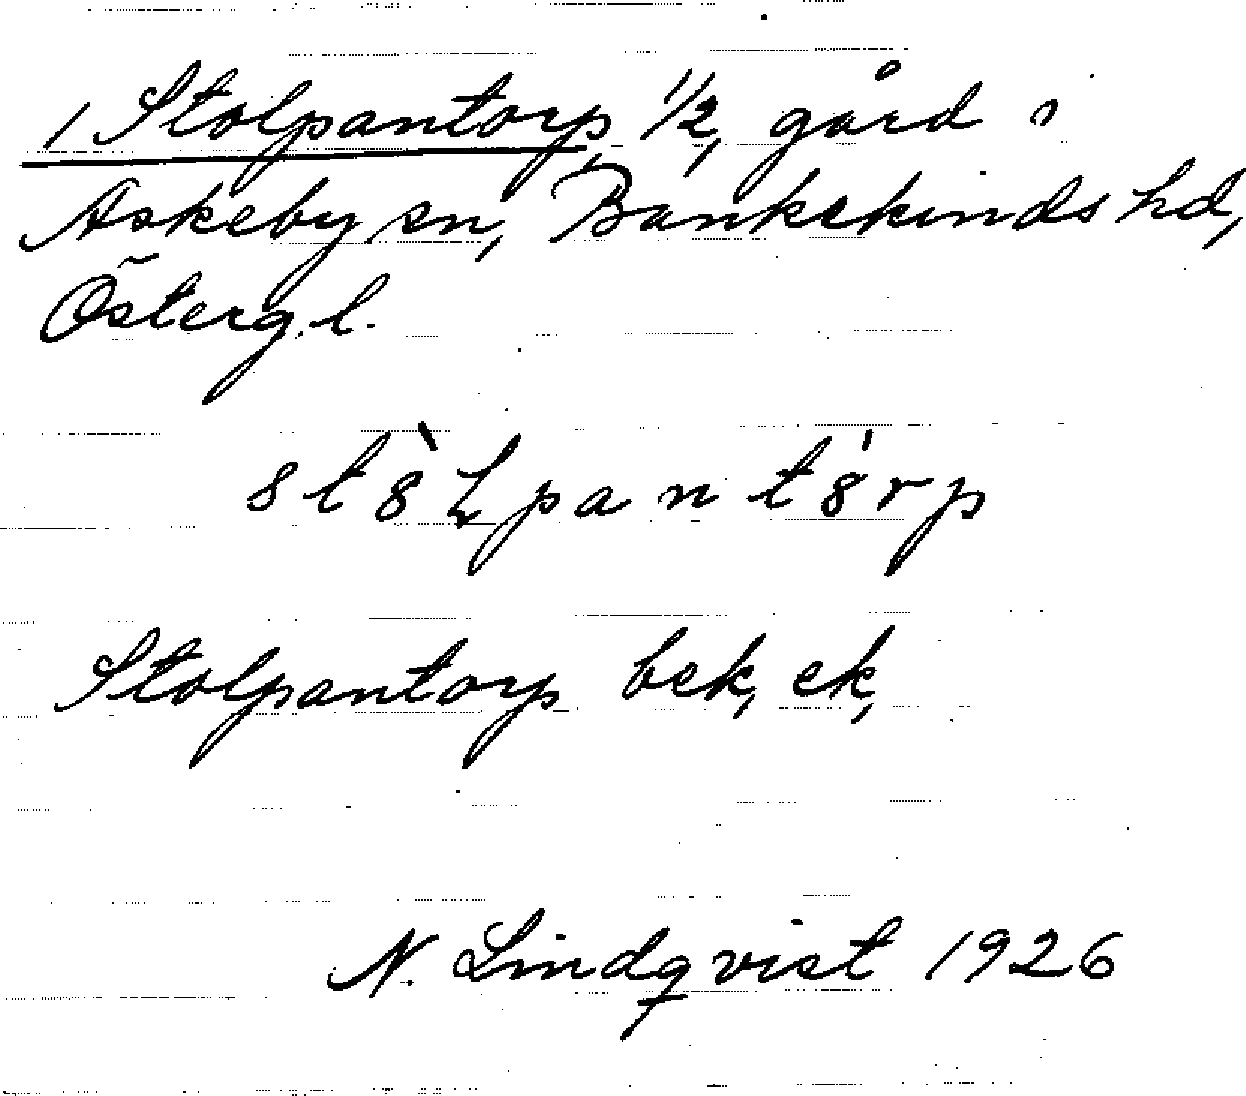 1 Stolpantorp 1/2, gård i
Askeby sn, Bankekinds hd,
Österg.l.
st8̀Lpant8́rp
Stolpantorp bek, ek,
N. Lindqvist 1926